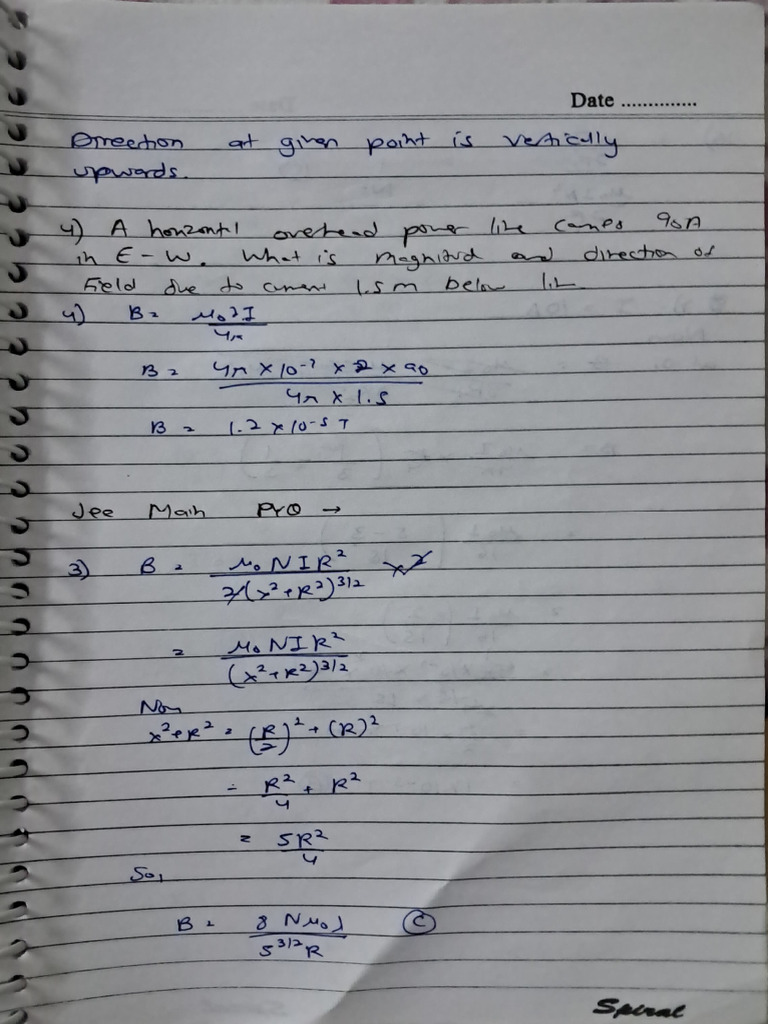 Date ..............
Direction at given point is vertically
upwards.
4) A horizontl overhead power line carries 90A
in E-W. What is magnitud and direction of
Field due to current 1.5m below lin
4) B = μ₀2I / 4π
B = 4π × 10⁻⁷ × 2 × 90 / 4π × 1.5
B = 1.2 × 10⁻⁵ T
Jee Main PYQ →
3) B = μ₀NIR² / 2(x²+R²)^3/2 × 2
= μ₀NIR² / (x²+R²)^3/2
Now
x²+R² = (R/2)² + (R)²
= R²/4 + R²
= 5R²/4
So,
B = 8Nμ₀I / 5^3/2 R (C)
Spiral